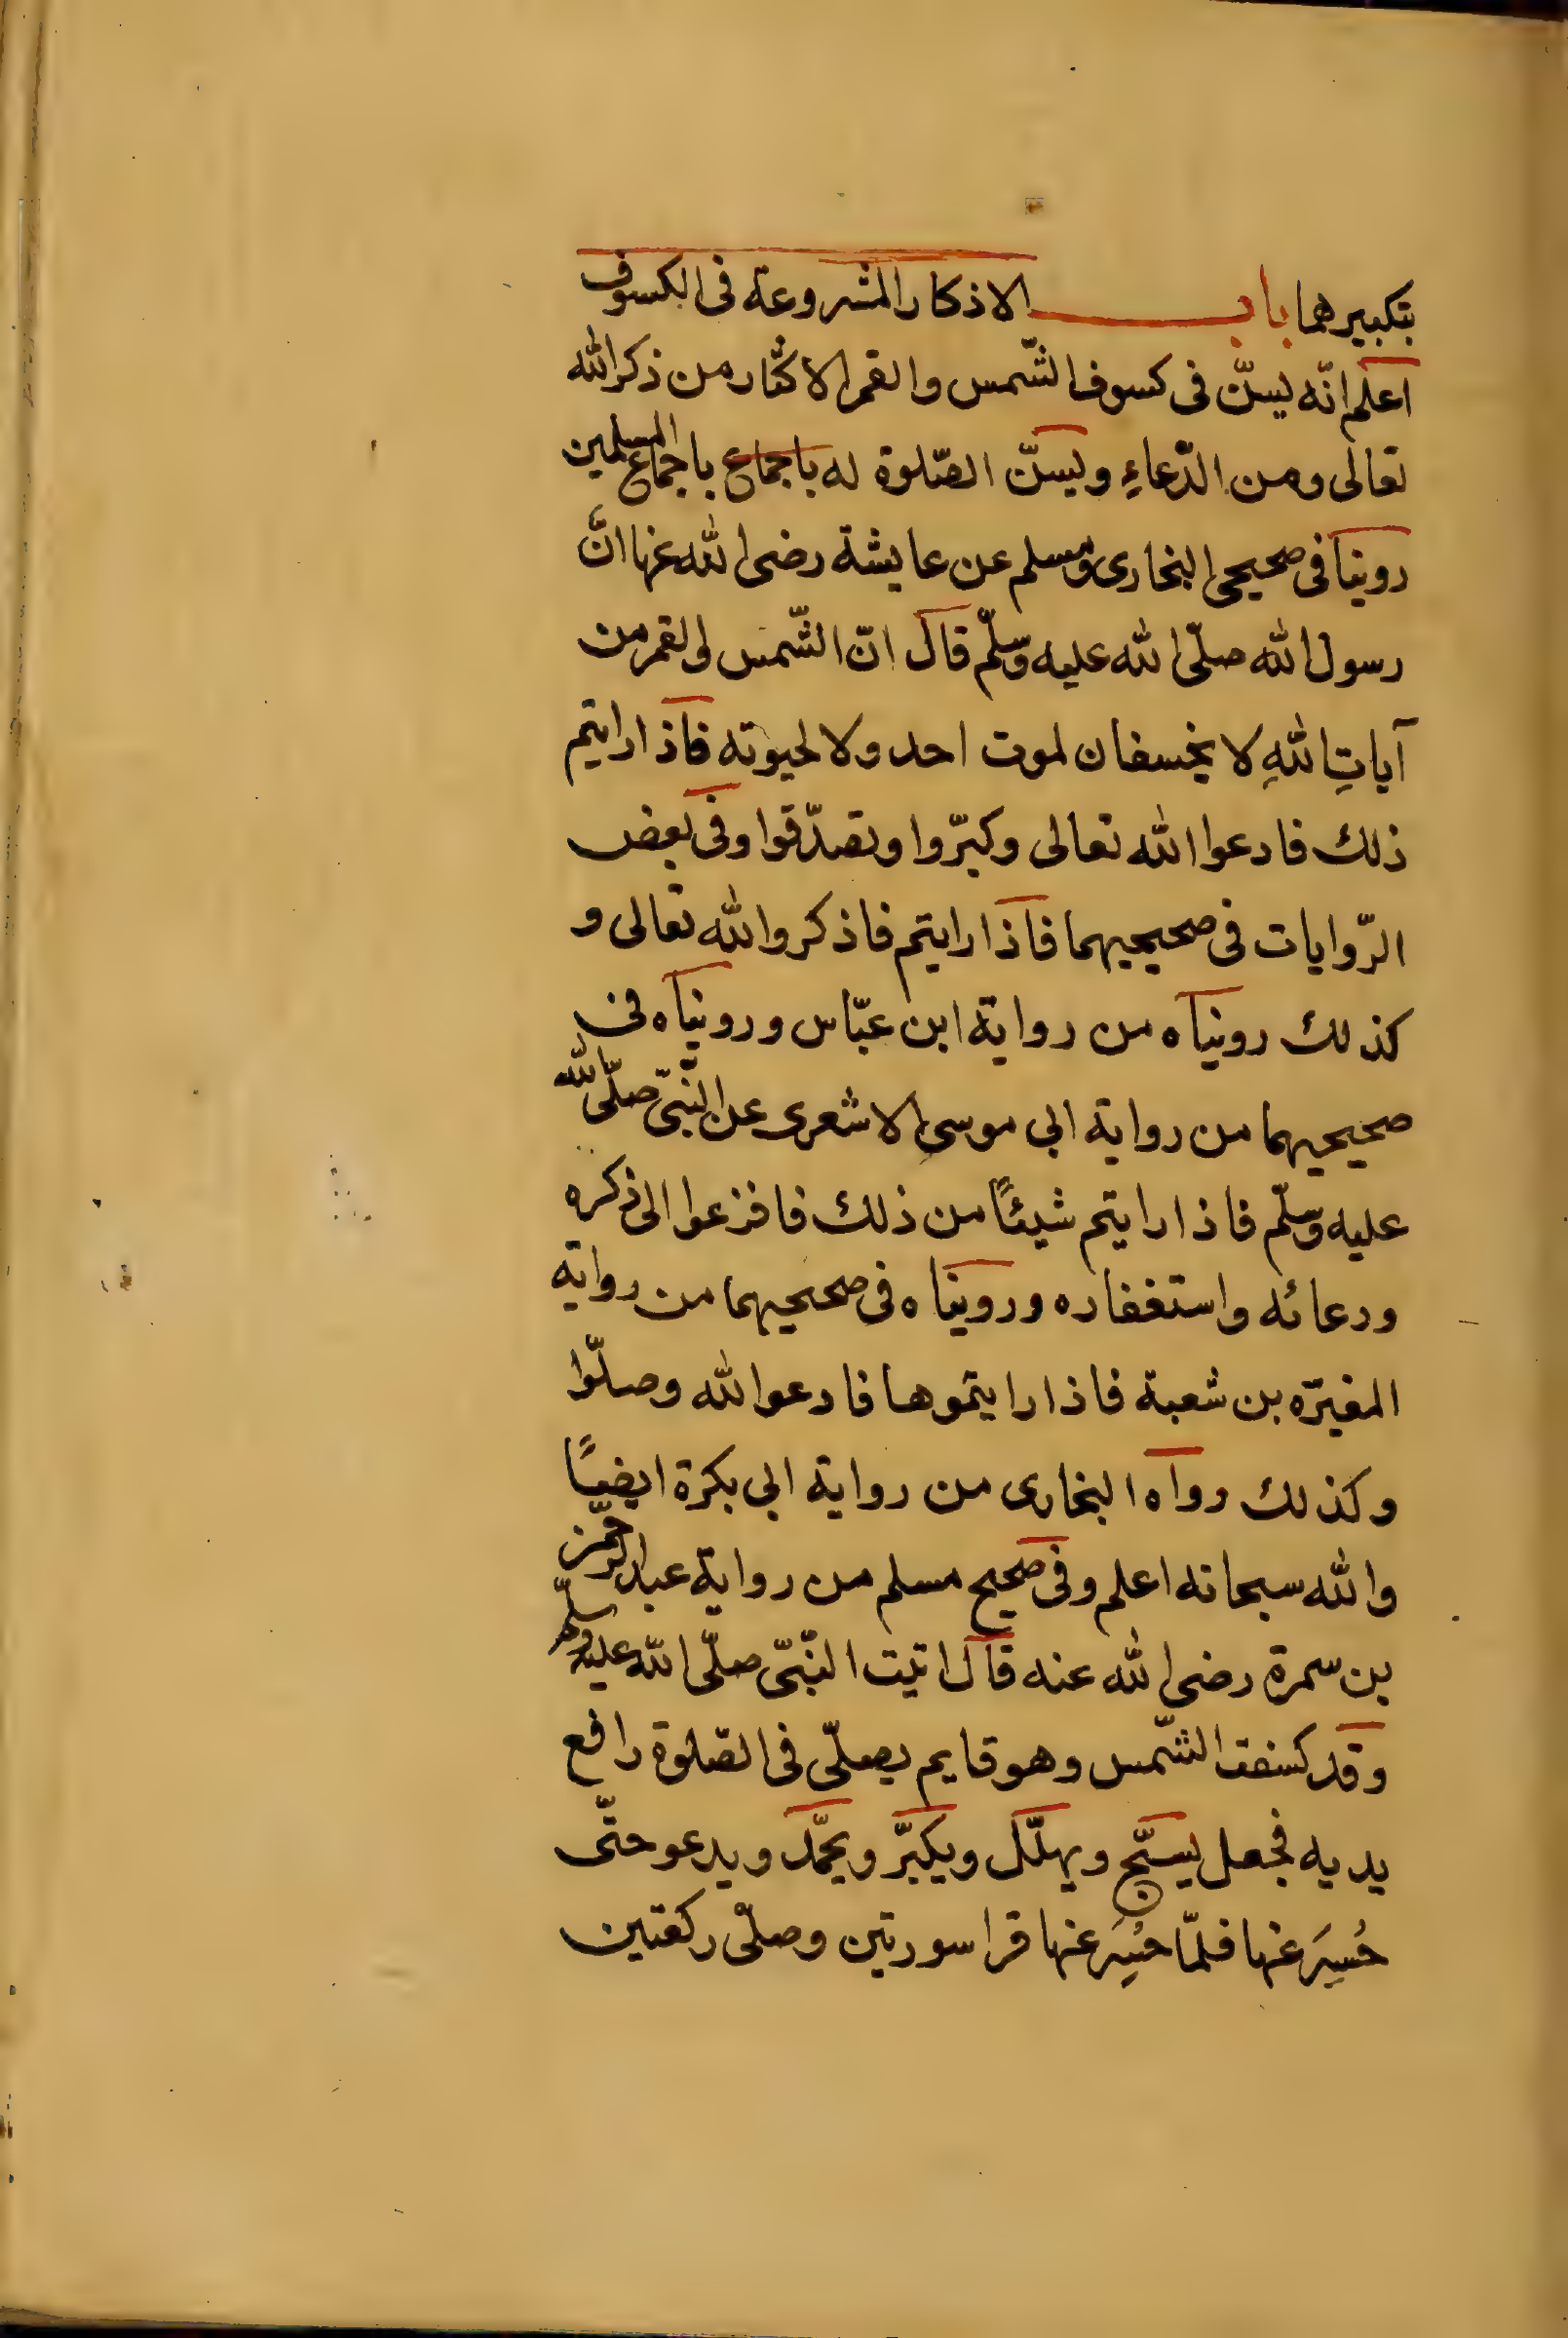 بتكبيرهما باب الاذكار المشروعة فى الكسوف
اعلم انّه يسنّ فى كسوف الشّمس والقمر الاكثار من ذكر الله
تعالى ومن الدّعاءِ ويسنّ الصّلوة له باجماع باجماع المسلمين
روينا فى صحيحى البخارى ومسلم عن عايشة رضى الله عنها انَّ
رسول الله صلّى الله عليه وسلّم قال انّ الشّمس والقمر من
آياتِ اللهِ لا يخسفان لموت احد ولا لحيوته فاذا رايتم
ذلك فادعوا الله تعالى وكبّروا وتصدّقوا وفى بعض
الرّوايات فى صحيحيهما فاذا رايتم فاذكروا الله تعالى و
كذلك رويناه من رواية ابن عبّاس ورويناه فى
صحيحيهما من رواية ابى موسى الاشعرى عن النّبىّ صلّى الله
عليه وسلّم فاذا رايتم شيئًا من ذلك فافزعوا الى ذكره
ودعائه واستغفاره ورويناه فى صحيحيهما من رواية
المغيره بن شعبة فاذا رايتموها فادعوا الله وصلّوا
وكذلك رواه البخارى من رواية ابى بكرة ايضًا
والله سبحانه اعلم وفى صحيح مسلم من رواية عبد الرّحمن
بن سمرة رضى الله عنه قال اتيت النّبىّ صلّى الله عليه وسلّم
وقد كسفت الشّمس وهو قايم يصلّى فى الصّلوة رافع
يديه فجعل يسبّح ويهلّل ويكبّر ويحمّد ويدعو حتّى
حُسِرَ عنها فلمّا حُسِرَ عنها قرا سورتين وصلّى ركعتين